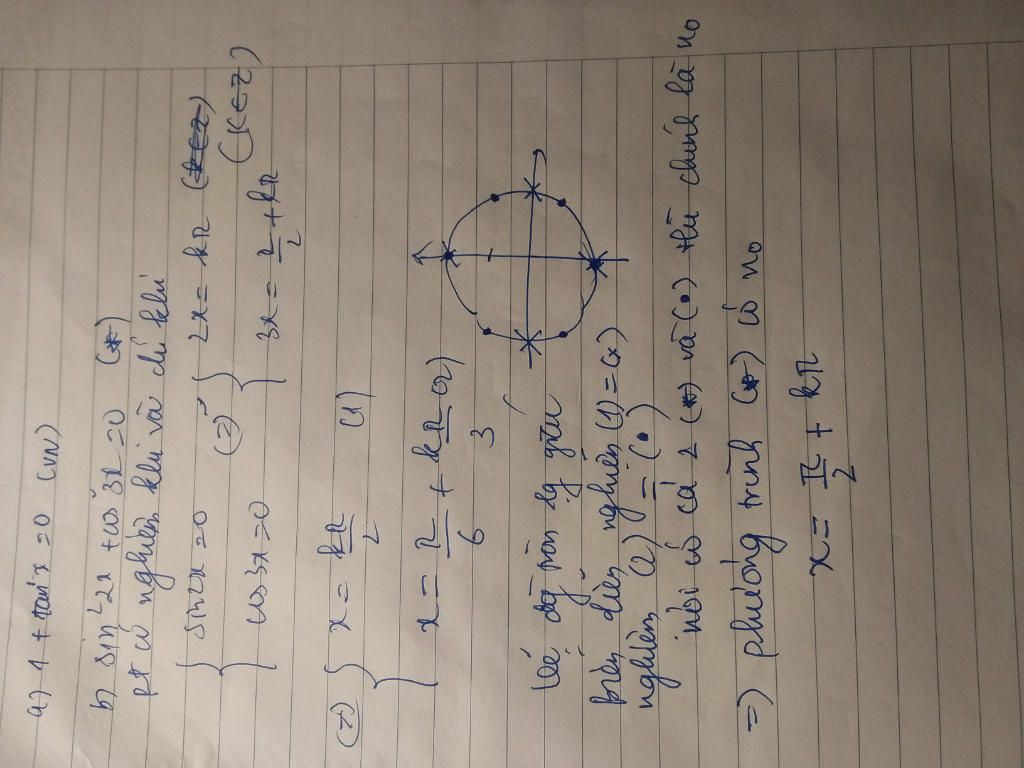 a) 1 + tan²x = 0 (VN)
b) sin²2x + cos²3x = 0 (*)
pt có nghiệm khi và chỉ khi
{ sin2x = 0 (=) { 2x = kπ
cos3x = 0 3x = π/2 + kπ (k∈Z)
(=) { x = kπ/2 (1)
x = π/6 + kπ/3 (2)
Vẽ đg tròn lg giác
biểu diễn nghiệm (1) = (x)
nghiệm (2) = (•)
nơi có cả 2 (x) và (•) thì chính là no
=) phương trình (*) có no
x = π/2 + kπ